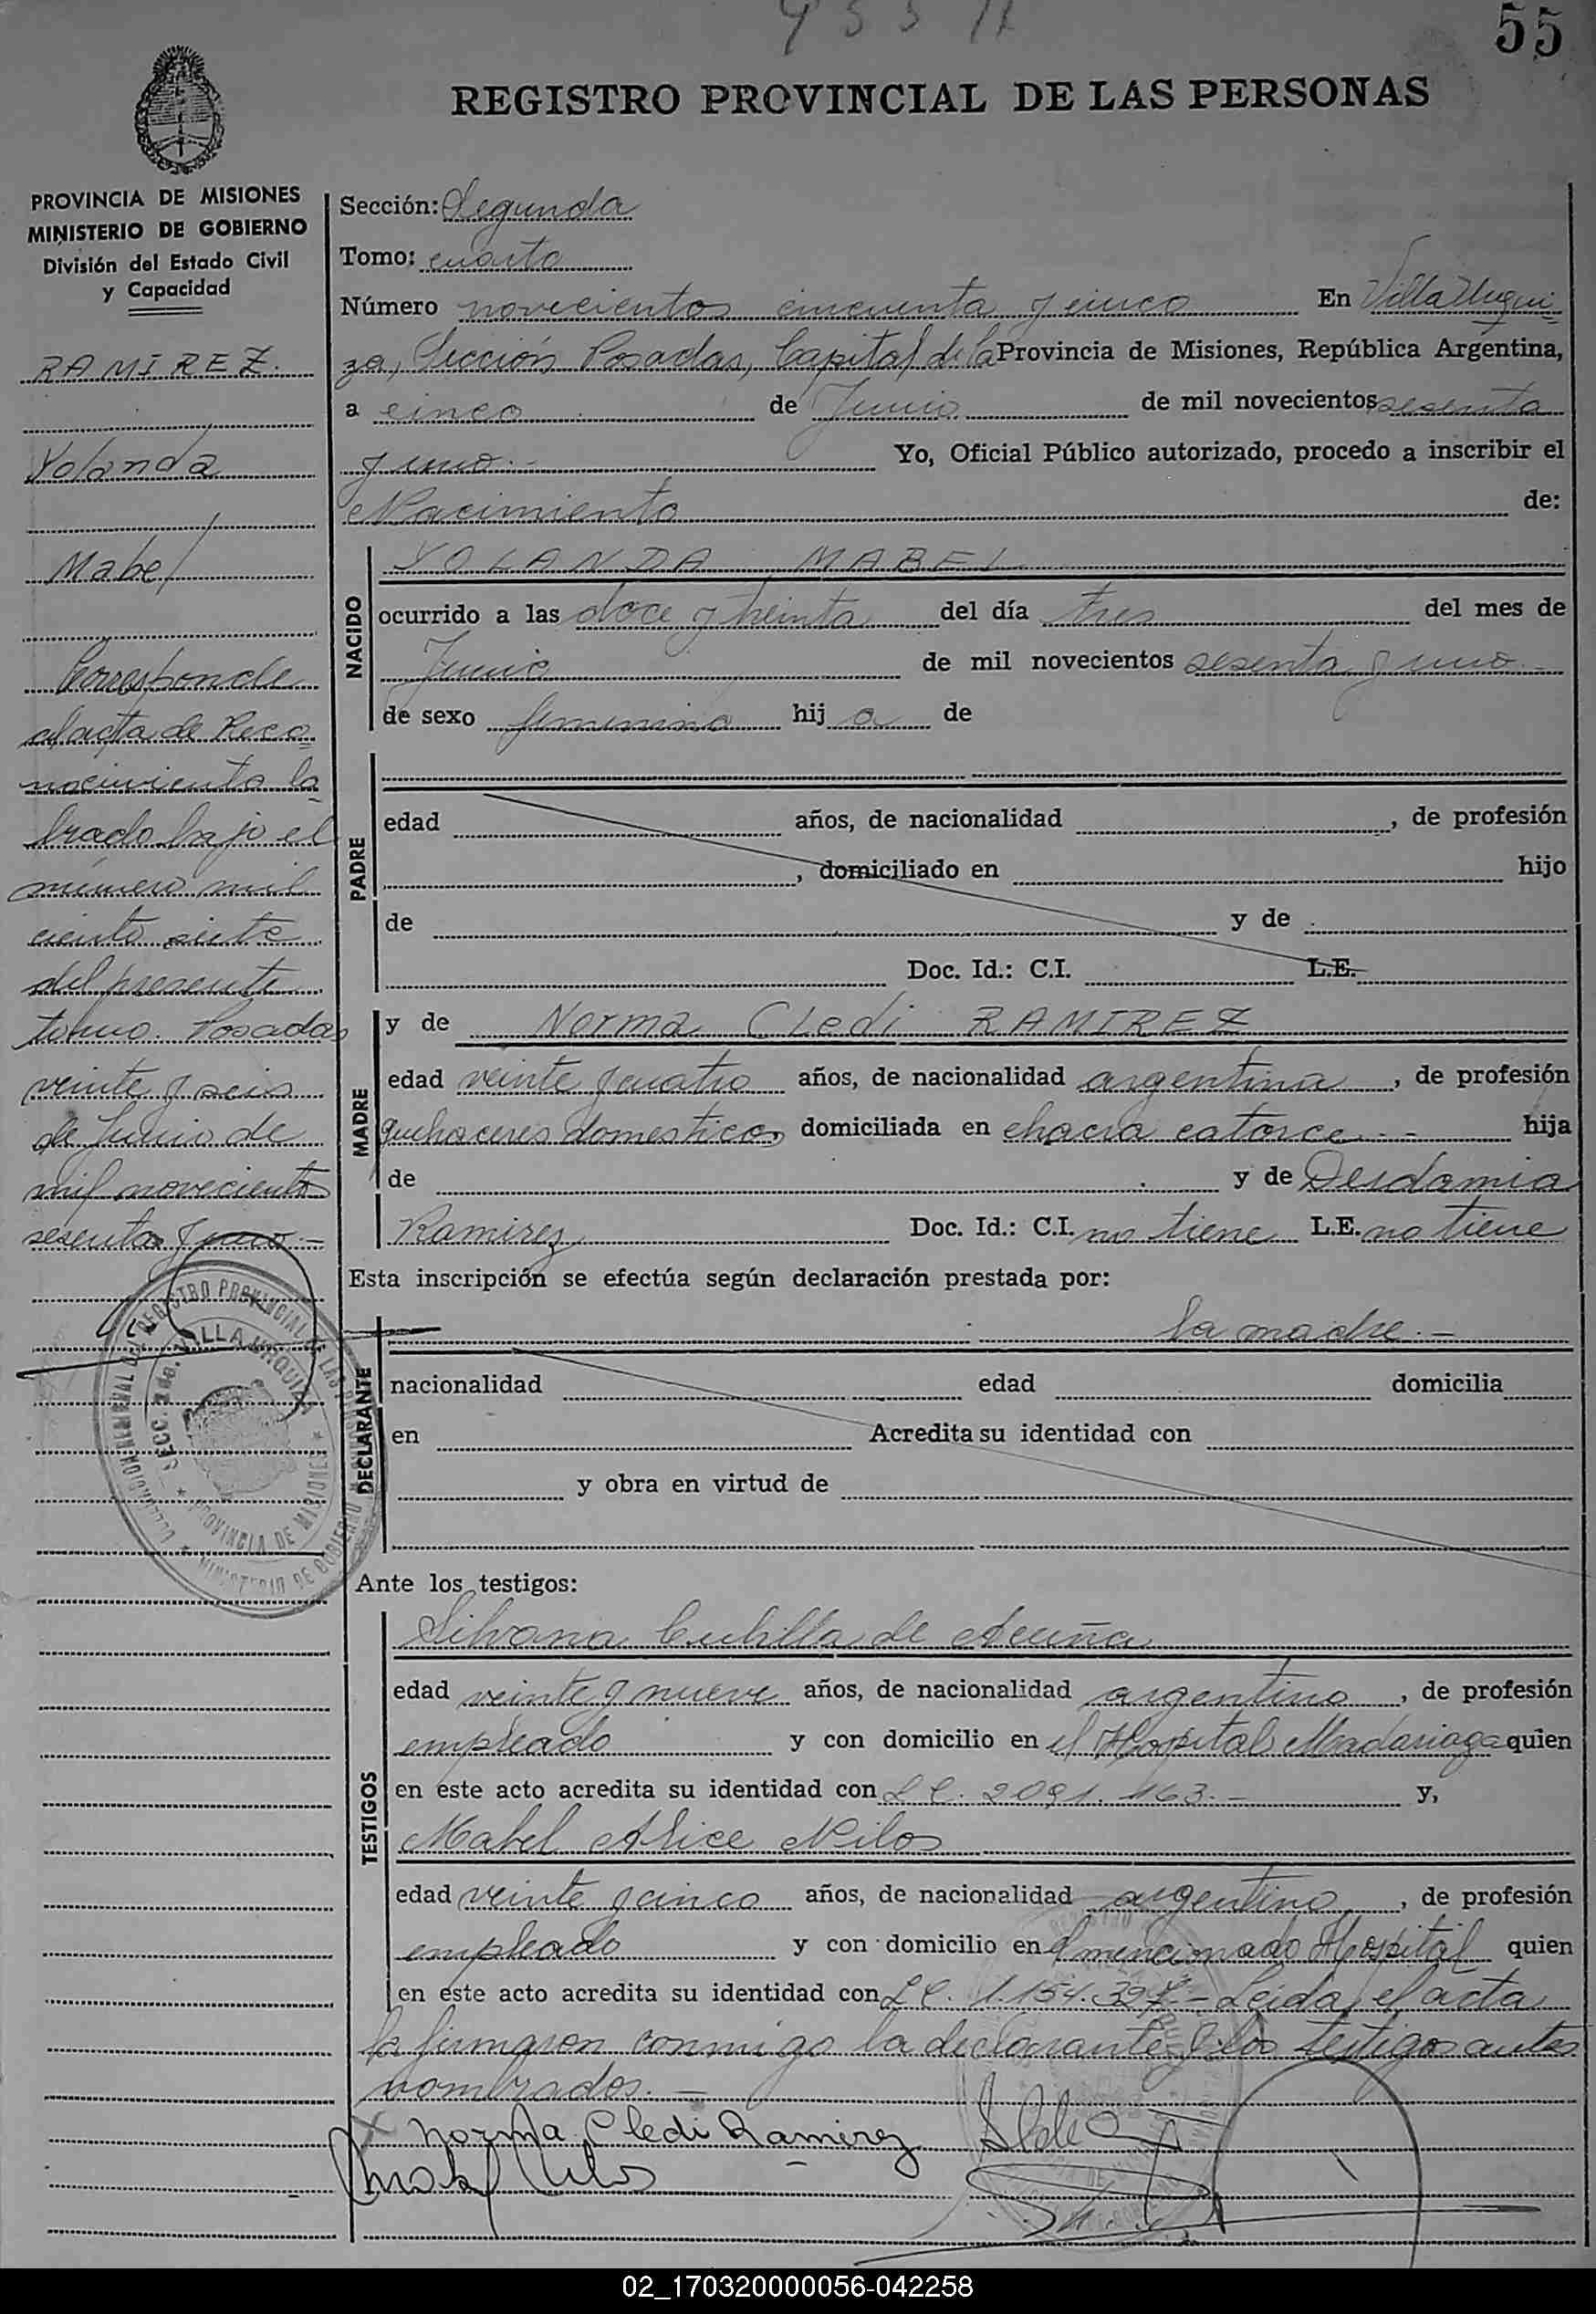 955
55
REGISTRO PROVINCIAL DE LAS PERSONAS
PROVINCIA DE MISIONES
MINISTERIO DE GOBIERNO
División del Estado Civil
y Capacidad
RAMIREZ.
Yolanda
Mabel
Corresponde
al acta de Reco
nocimiento la
brado bajo el
número mil
ciento siete
del presente
tomo. Posadas
veinte y seis
de Junio de
mil novecientos
sesenta y uno.-
Sección: Segunda
Tomo: cuarto
Número novecientos cincuenta y cinco En Villa Urqui
za, Sección Posadas, Capital de la Provincia de Misiones, República Argentina,
a cinco de Junio de mil novecientos sesenta
y uno.- Yo, Oficial Público autorizado, procedo a inscribir el
Nacimiento de:
NACIDO
YOLANDA MABEL
ocurrido a las doce y treinta del día tres del mes de
Junio de mil novecientos sesenta y uno.-
de sexo femenino hij a de
PADRE
edad años, de nacionalidad , de profesión
, domiciliado en hijo
de y de
Doc. Id.: C.I. L.E.
MADRE
y de Norma Cledi RAMIREZ
edad veinte y cuatro años, de nacionalidad argentina, de profesión
quehaceres domesticos, domiciliada en chacra catorce.- hija
de y de Deidamia
Ramirez Doc. Id.: C.I. no tiene L.E. no tiene
Esta inscripción se efectúa según declaración prestada por:
DECLARANTE
la madre.-
nacionalidad edad domicilia
en Acredita su identidad con
y obra en virtud de
Ante los testigos:
TESTIGOS
Silvana Cubilla de Acuña
edad veinte y nueve años, de nacionalidad argentino, de profesión
empleado y con domicilio en el Hospital Madariaga quien
en este acto acredita su identidad con L C. 2091.163.- y,
Mabel Alice Nilos
edad veinte y cinco años, de nacionalidad argentino, de profesión
empleado y con domicilio en el mencionado Hospital quien
en este acto acredita su identidad con L C. 1.154.327.- Leida el acta
la firmaron conmigo la declarante y los testigos antes
nombrados.-
Norma Cledi Ramirez
SECC. 2da. VILLA URQUIZA
PROVINCIA DE MISIONES
02_170320000056-042258